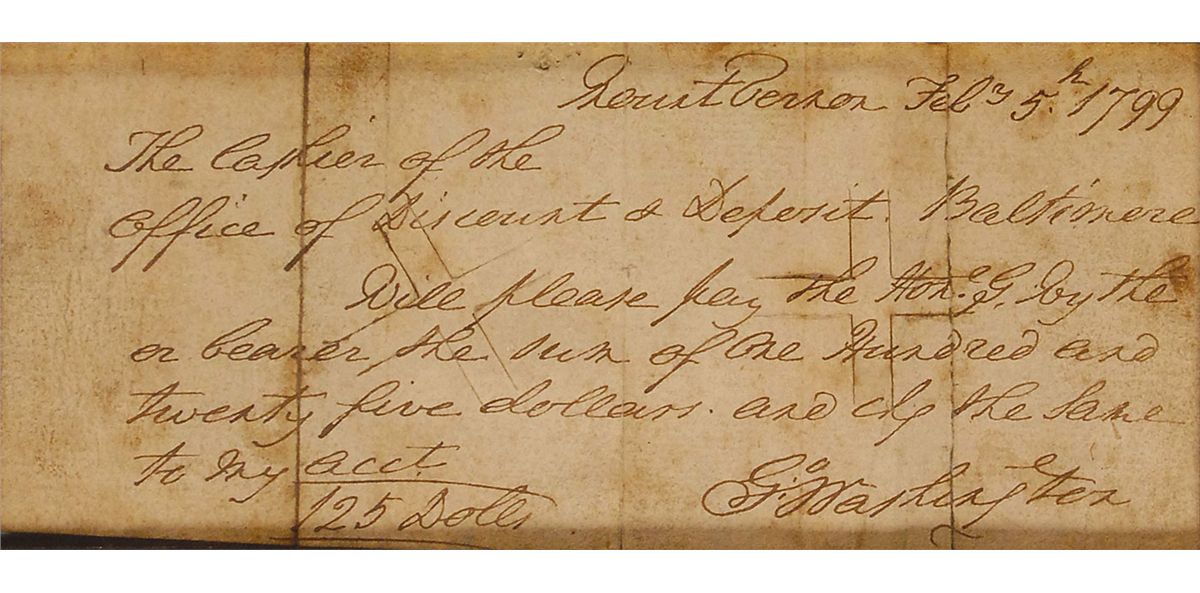 Mount Vernon Feby 5.h 1799
The Cashier of the
Office of Discount & Deposit. Baltimore
Will please pay the Hone. G. by the
or bearer the sum of One Hundred and
twenty five dollars. and chg the same
to my acct.
125 Dolls
Go. Washington